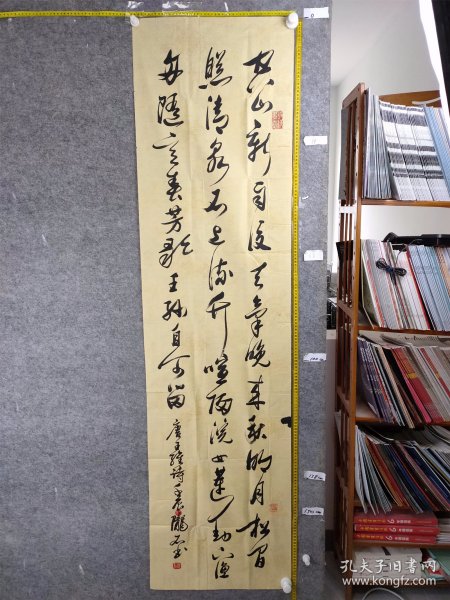 空山新雨後天氣晚來秋明月松間
照清泉石上流竹喧歸浣女蓮動下漁
舟隨意春芳歇王孫自可留
唐王維詩壬辰 書
孔夫子旧书网
www.kongfz.com